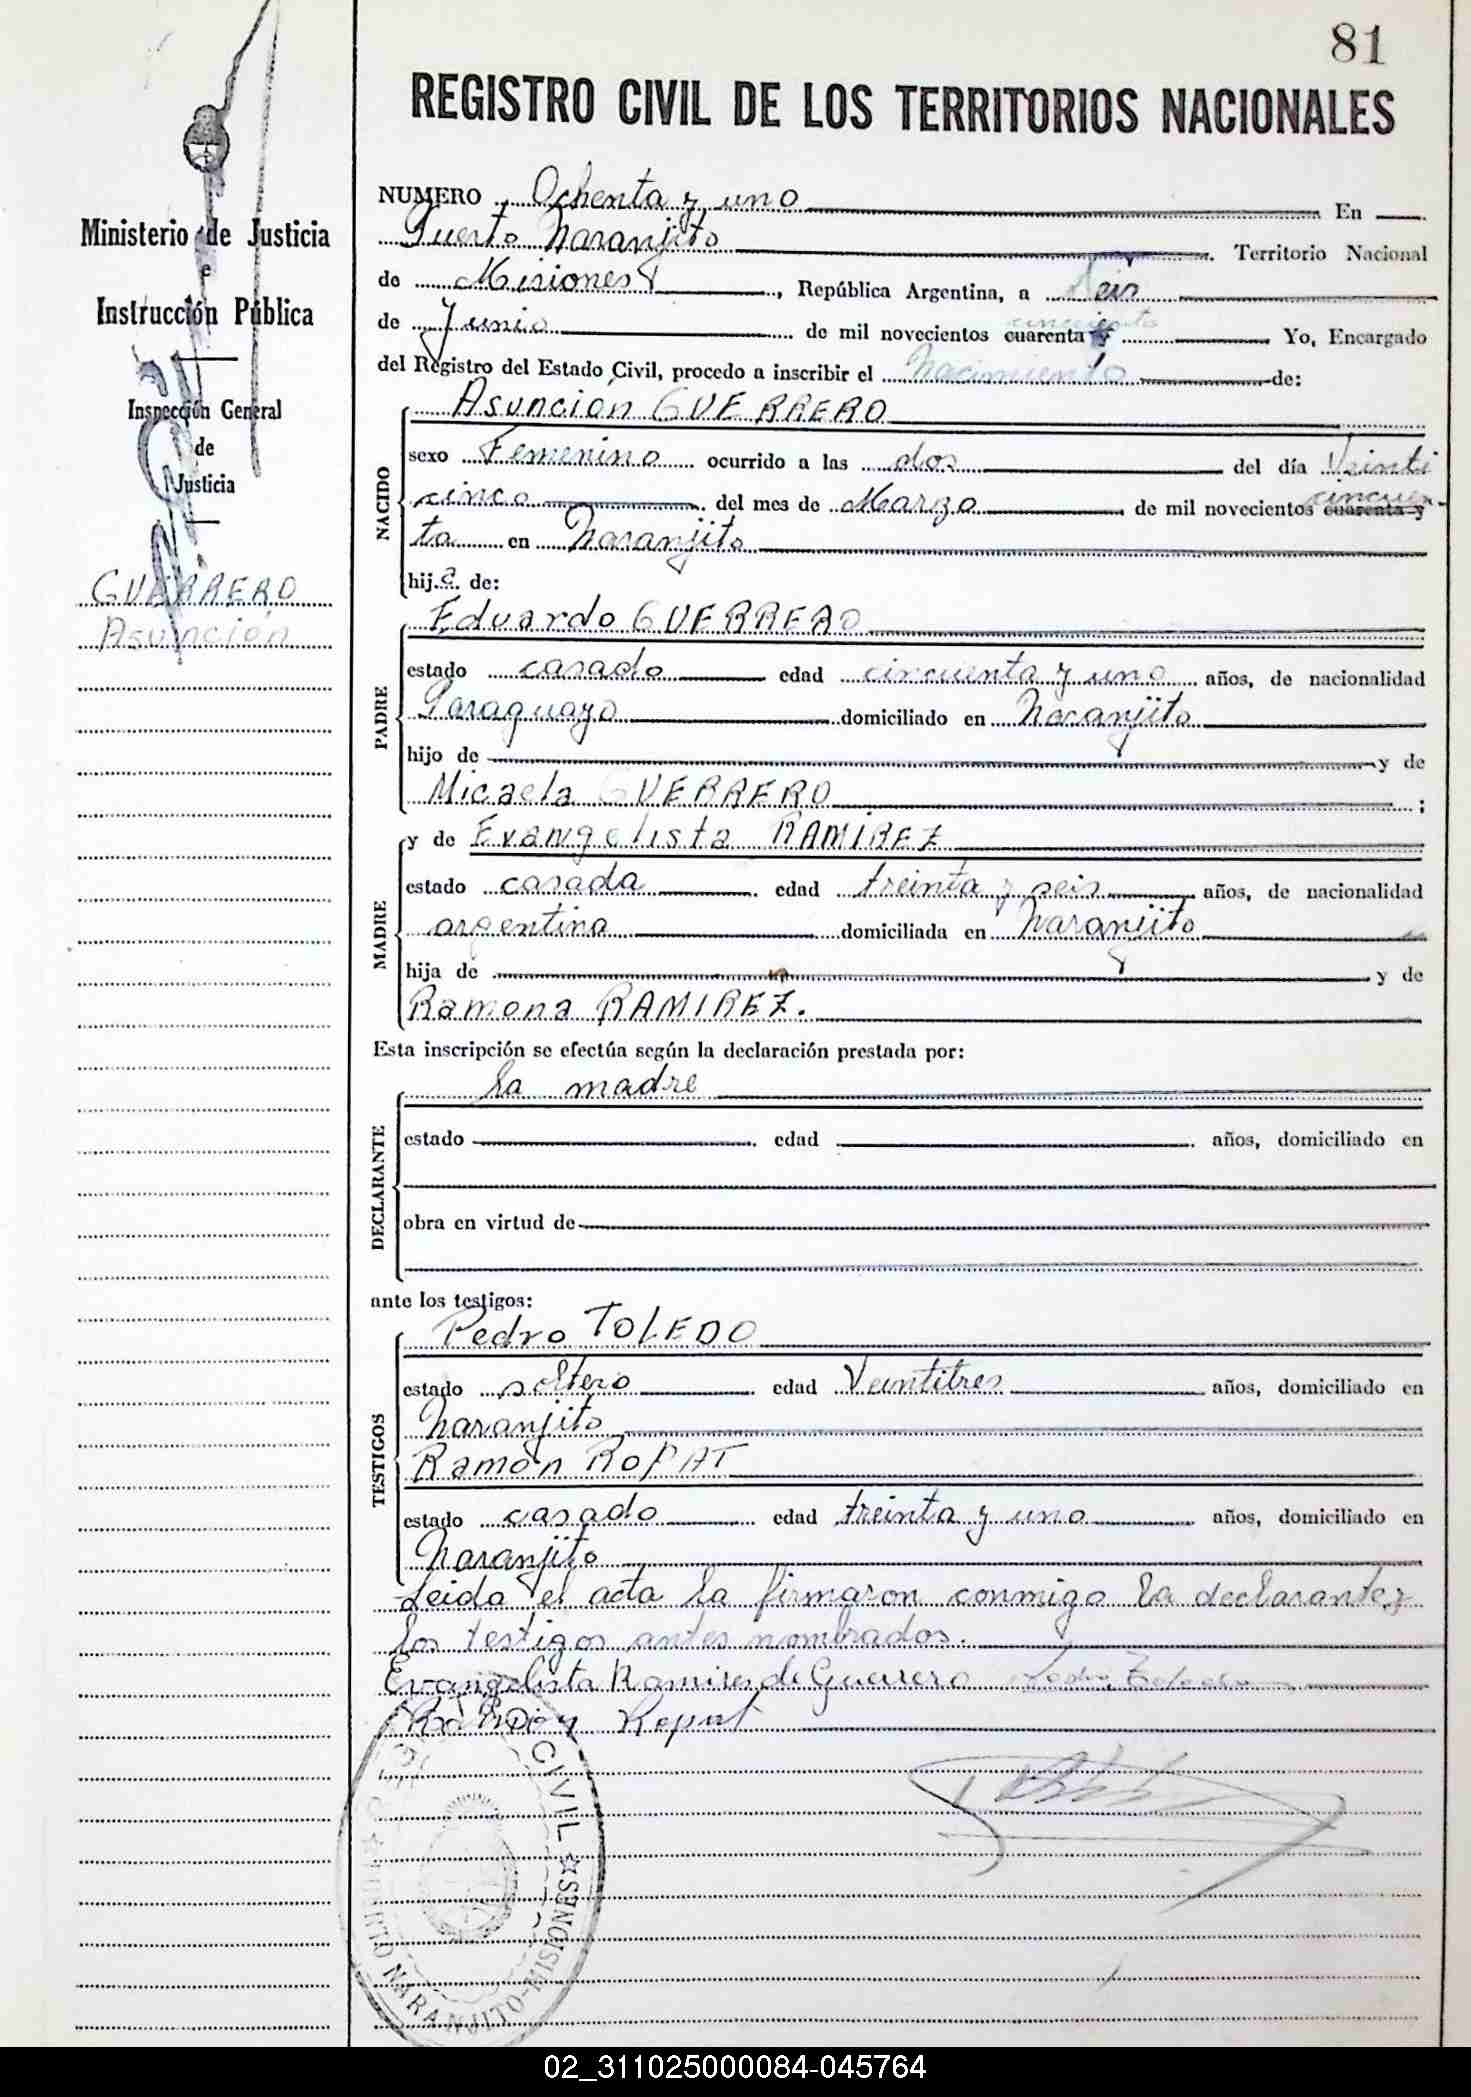 81
REGISTRO CIVIL DE LOS TERRITORIOS NACIONALES
Ministerio de Justicia
e
Instrucción Pública
Inspección General
de
Justicia
GUERRERO
Asunción
NUMERO Ochenta y uno En
Puerto Naranjito Territorio Nacional
de Misiones, República Argentina, a Seis
de Junio de mil novecientos cuarenta y cincuenta Yo, Encargado
del Registro del Estado Civil, procedo a inscribir el Nacimiento de:
NACIDO
Asunción GUERRERO
sexo Femenino ocurrido a las dos del día Veinti
cinco del mes de Marzo de mil novecientos cuarenta y cincuen-
ta en Naranjito
hija de:
PADRE
Eduardo GUERRERO
estado casado edad cincuenta y uno años, de nacionalidad
Paraguayo domiciliado en Naranjito
hijo de y de
Micaela GUERRERO ;
MADRE
y de Evangelista RAMIREZ
estado casada edad treinta y seis años, de nacionalidad
argentina domiciliada en Naranjito
hija de y de
Ramona RAMIREZ.
Esta inscripción se efectúa según la declaración prestada por:
DECLARANTE
la madre
estado edad años, domiciliado en
obra en virtud de
ante los testigos:
TESTIGOS
Pedro TOLEDO
estado soltero edad Veintitres años, domiciliado en
Naranjito
Ramón ROPAT
estado casado edad treinta y uno años, domiciliado en
Naranjito
Leida el acta la firmaron conmigo la declarante y
los testigos antes nombrados.
Evangelista Ramires de Guerrero Pedro Toledo
Ramon Ropat
CIVIL
PUERTO NARANJITO-MISIONES
02_311025000084-045764